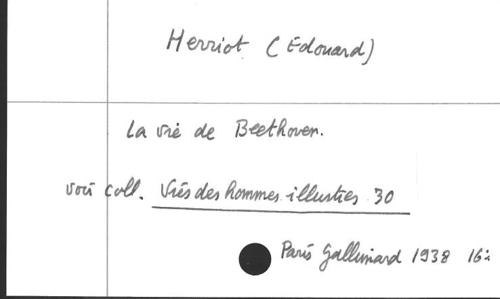 Herriot (Edouard)
La vie de Beethoven.
voir coll. Vies des hommes illustres 30
Paris Gallimard 1938 16°